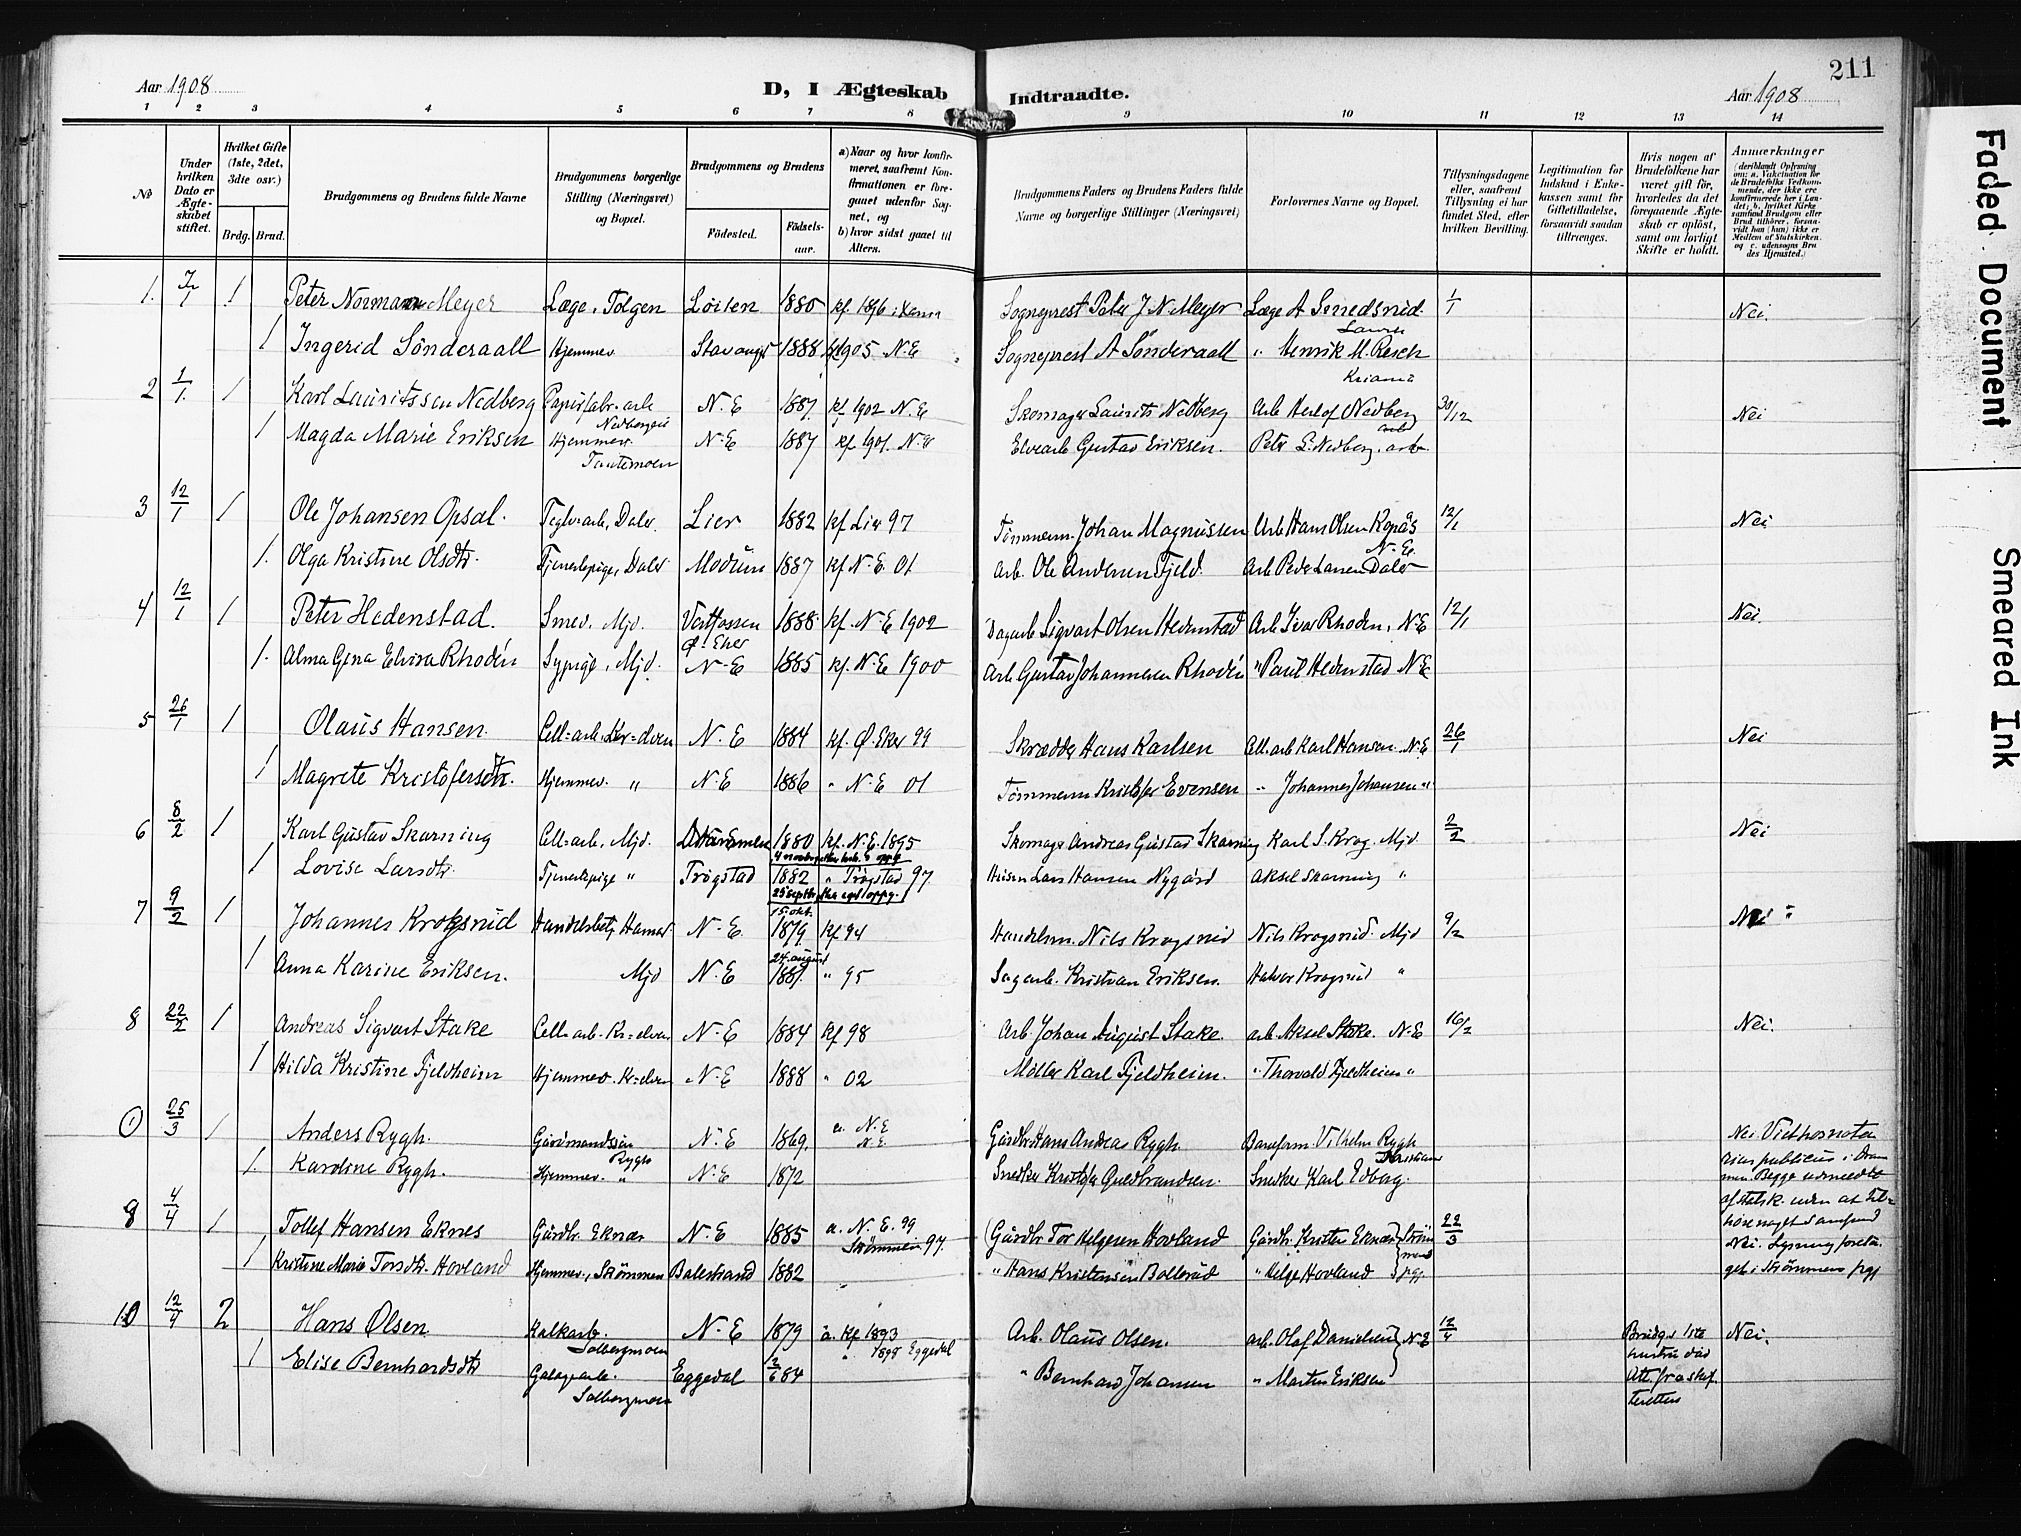 211
Aar 1908
D, I Ægteskab Indtraadte.
Aar 1908
1 2 3 4 5 6 7 8 9 10 11 12 13 14
№
Under hvilken Dato er Ægteskabet stiftet.
Hvilket Gifte (1ste, 2det, 3die osv.)
Brdg. Brud.
Brudgommens og Brudens fulde Navne
Brudgommens borgerlige Stilling (Næringsvei) og Bopæl.
Brudgommens og Brudens
Fødested. Fødselsaar.
a) Naar og hvor konfirmeret, saafremt Konfirmationen er foregaaet udenfor Sognet, og
b) hvor sidst gaaet til Alters.
Brudgommens Faders og Brudens Faders fulde Navne og borgerlige Stillinger (Næringsvei)
Forlovernes Navne og Bopæl.
Tillysningsdagene eller, saafremt Tillysning ei har fundet Sted, efter hvilken Bevilling.
Legitimation for Indskud i Enkekassen samt for Giftetilladelse, forsaavidt saadan tiltrænges.
Hvis nogen af Brudefolkene har været gift før, hvorledes da det foregaaende Ægteskab er opløst, samt om lovligt Skifte er holdt.
Anmærkninger
(deriblandt Oplysning om: a. Vakcination for de Brudefolks Vedkommende, der ikke ere konfirmerede her i Landet; b. hvilket Kirkesamfund Brudgom eller Brud tilhører, forsaavidt han (hun) ikke er Medlem af Statskirken, og c. udensogns Brudes Hjemsted.)
1. 7/1 1 Peter Normann Meyer Læge, Tolgen Løiten 1880 kf. 1896 i Sogneprest Peter J. N. Meyer Læge A Smedsrud. 1/1 Nei.
1 Ingerid Sønderaall Hjemmev. Stavanger 1888 kf 1905 N.E Sogneprest A Sønderaall " Henrik M. Resch
Kriania
2 1/1. 1 Karl Lauritssen Nedberg Papirfabr-arb N.E 1887. kf 1902 N.E Skomager Laurits Nedberg Arb Herlof Nedberg 30/12 Nei
1 Magda Marie Eriksen Hjemmev. N.E 1887 kf 1901. N.E Elvearb Gustav Eriksen. Peter L. Nedberg, arb.
3 12/1 1 Ole Johansen Opsal. Teglv-arb, Daler. Lier 1882 kf Lier 97 Tømmerm. Johan Magnussen Arb Hans Olsen Kopås 12/1 Nei
N.E.
1. Olga Kristine Olsdtr. Tjenestepige, Daler Modum 1887 kf N.E. 01 Arb. Ole Andersen Fjeld. Arb Peder Larsen Daler
4 12/1 1 Peter Hedenstad. Smed. Mjd. Vestfossen 1888. kf. N.E 1902 Dagarb Sigvart Olsen Hedenstad Arb Ivar Rhoden, N.E 12/1 Nei.
Ø. Eker
1. Alma Gina Elvira Rhodén Sypige, Mjd. N-E 1885 kf. N.E 1900 Arb Gustav Johannesen Rhodén " Paul Hedenstad N.E
5 26/1 1 Olaus Hansen. Cell=arb. N.E 1884 kf. Ø. Eker 99 Skrædder Hans Karlsen Karl Hansen N.E 26/1 Nei
1 Magrete Kristofersdtr. Hjemmev. " N.E 1886 " N.E 01 Tømmerm Kristofer Evensen " Johannes Johansen "
6 8/2 1 Karl Gustav Skarning Cell=arb, Mjd. Drammen 1880 kf. N.E. 1895 Skomag. Andreas Gustad Skarning Karl S. Krog. Mjd 2/2 Nei
1 Lovise Larsdtr. Tjenestepige " Trøgstad 1882 " Trøgstad 97 Lars Hansen Nygård Aksel Skarning "
7 9/2 1 Johannes Krogsrud Hamar N-E. 15. okt. 1879 kf 94 Handelsm. Nils Krogsrud Nils Krogsrud. Mjd 9/2 Nei
1 Anna Karine Eriksen. Mjd N.E 24. august 1881. " 95 Sagarb. Kristian Eriksen. Halvor Krogsrud "
8 22/2 1 Andreas Sigvart Stake Cell=arb. Kr=elven N-E 1884 kf 98 Arb. Johan August Stake. arb. Aksel Stake. N.E 16/2 Nei.
1 Hilda Kristine Fjeldheim Hjemmev. Kr=elven N.E 1888 " 02 Møller Karl Fjeldheim. " Thorvald Fjeldheim "
1 25/3 1 Anders Rygh. Gårdmandssøn N.E 1869. a. N.E Gårdbr Hans Andreas Rygh. Vilhelm Rygh Nei. Viet hos
Rygh N.E.
1. Karoline Rygh. Hjemmev. " N.E 1872 Snedker Kristofer Guldbrandsen. Snedker Karl Edborg.
publicus i Drammen. Begge udmeldte af statsk. uden at tilhøre noget samfund
9 4/4 1 Tollef Hansen Eknes Gårdbr. Eknæs N.E 1885 a. N.E. 99 Gårdbr Tor Helgesen Hovland Gårdbr. Krister Eknæs 22/3
Strømmen 97.
1 Kristine Marie Torsdtr. Hovland Hjemmev., Strømmen Balestrand 1882 " Hans Kristensen Bollerud " Helge Hovland
Nei. Lysning foretaget i Strømmens prgj
10 12/4 2 Hans Olsen Kalkarb. N.E 1879 a. kf 1893 Arb. Olaus Olsen. arb. Olaf Danielsen N.E 12/4 Brudg. 1ste hustru død Nei.
Solbergmoen " 1898 Eggedal
1 Elise Bernhardsdtr Eggedal 2/6 84 " Bernhard Johansen " Martin Eriksen Att. fra skifteretten
Solbergmoen
Faded Document
Smeared Ink